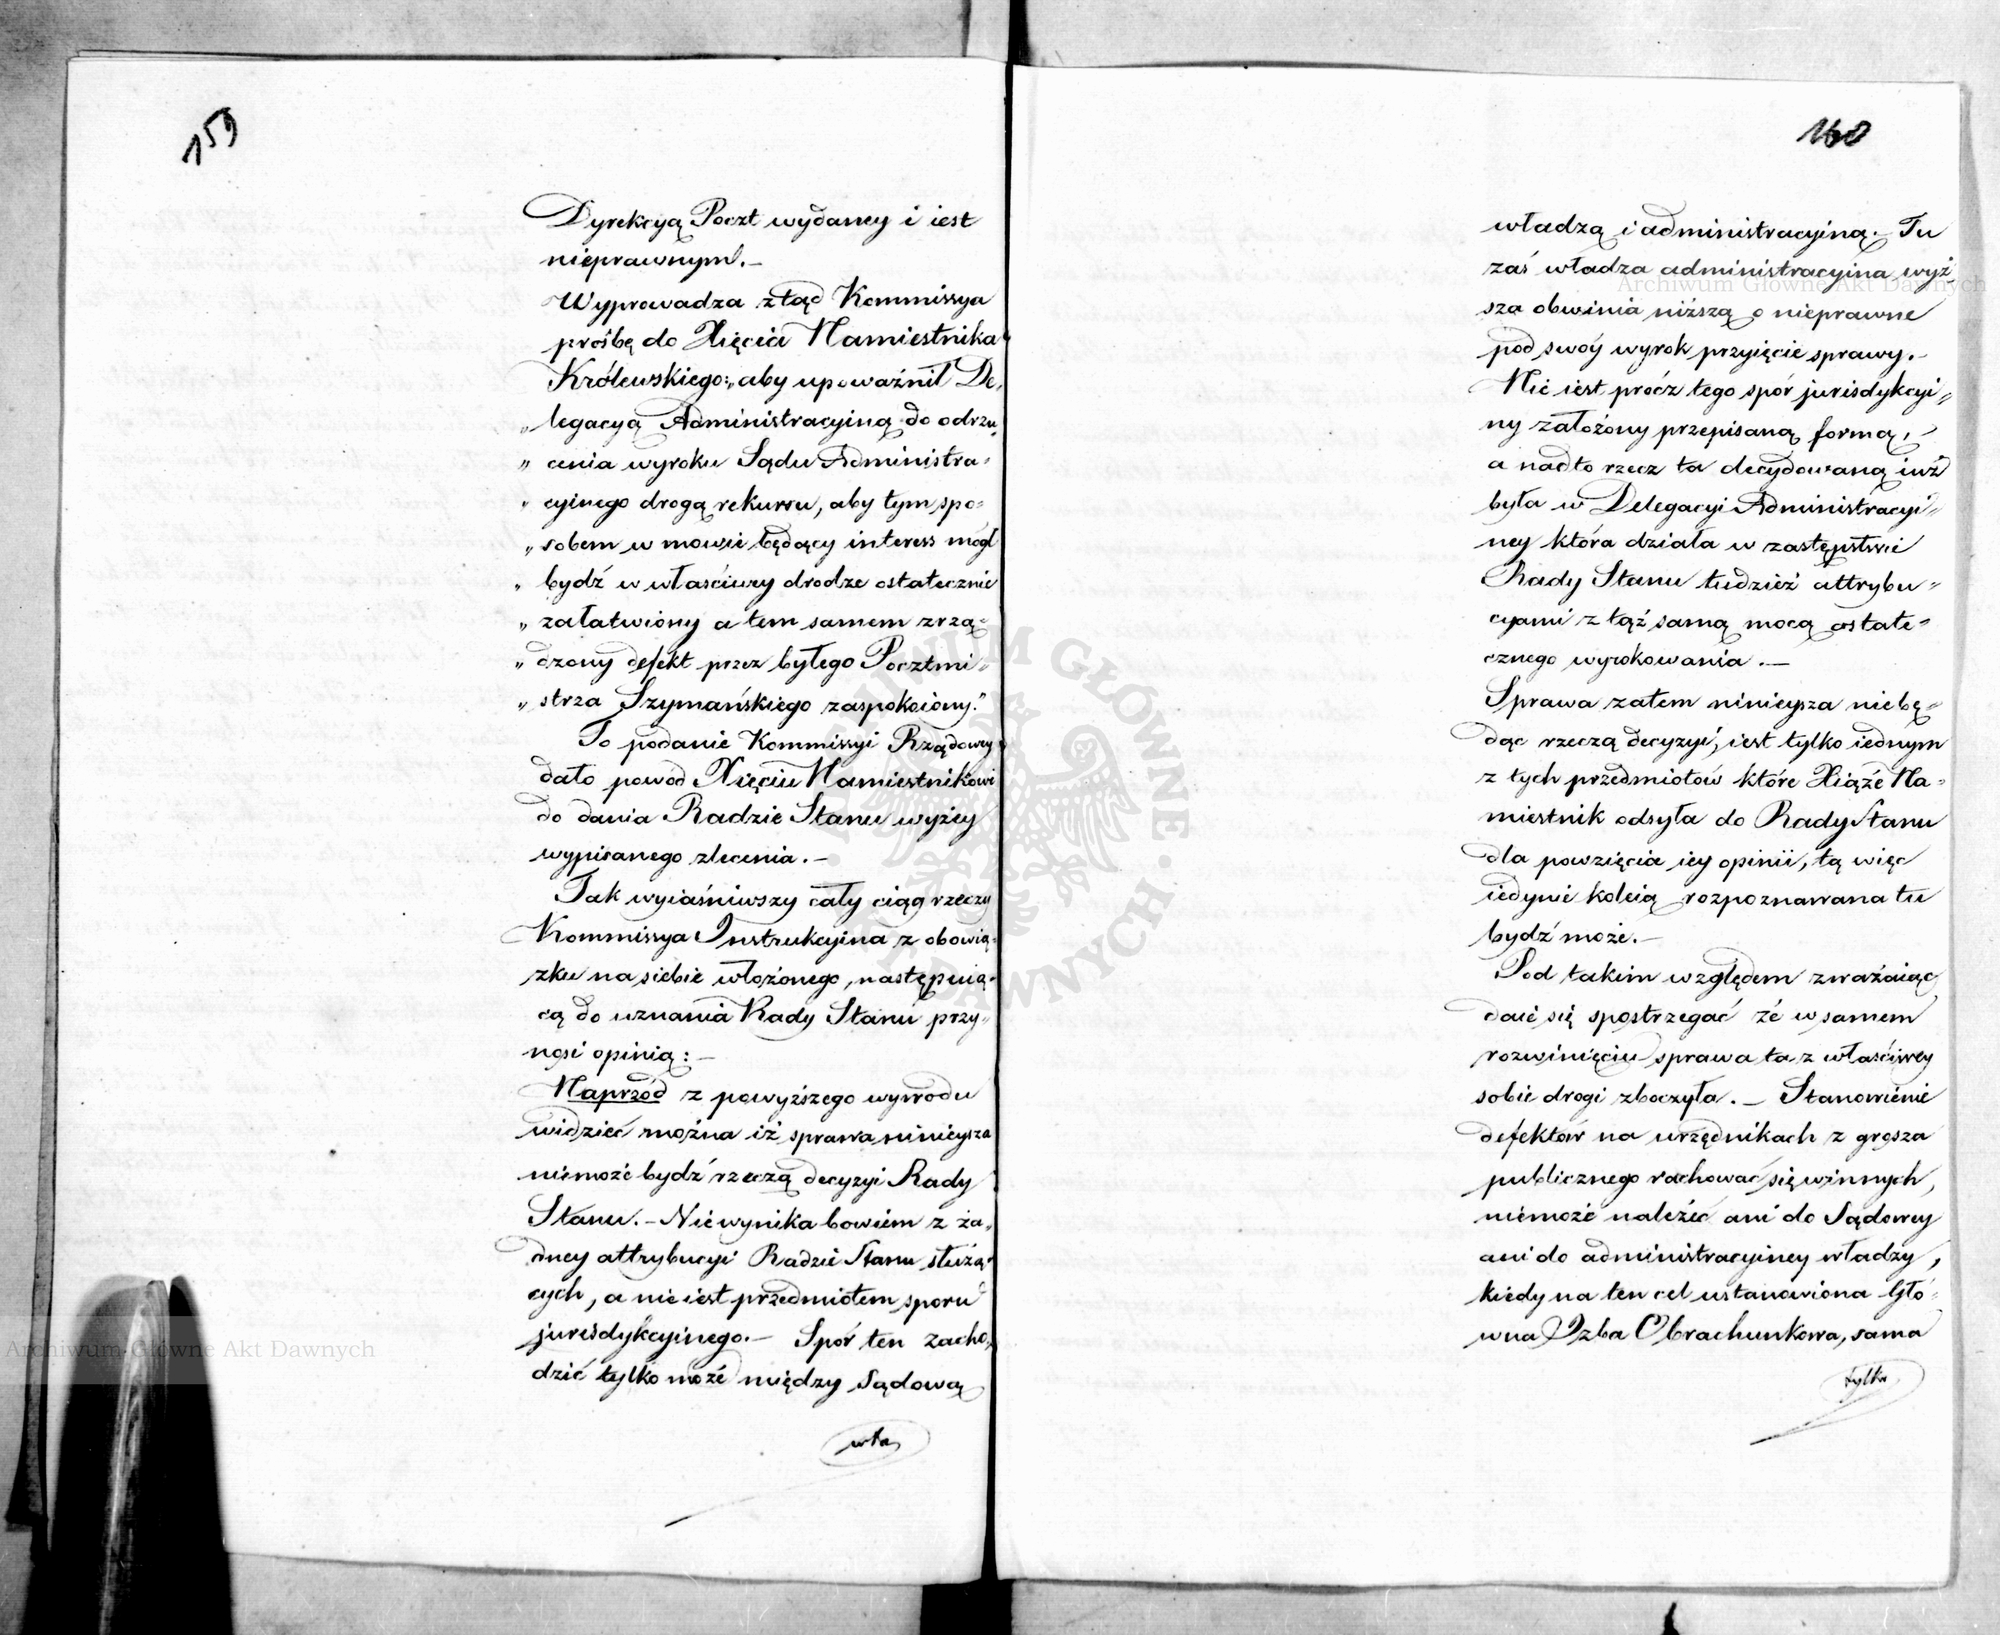 159
Dyrekcyą Poczt wydaney i iest
nieprawnym.—
Wyprowadza ztąd Kommissya
prośbę do Xięcia Namiestnika
Królewskiego: „aby upoważnił De-
„legacyą Administracyiną do odrzu-
„cenia wyroku Sądu Administra-
„cyinego drogą rekursu, aby tym spo-
„sobem w mowie będący interess mógł
„bydź w właściwey drodze ostatecznie
„załatwiony a tem samem zrzą-
„dzony defekt przez byłego Pocztmi-
„strza Szymańskiego zaspokoiony."
To podanie Kommissyi Rządowey
dało powód Xięciu Namiestnikowi
do dania Radzie Stanu wyżey
wypisanego zlecenia.—
Tak wyiaśniwszy cały ciąg rzeczy
Kommissya Instrukcyina z obowią-
zku na siebie włożonego, następuią-
cą do uznania Rady Stanu przy-
nosi opinią:—
Naprzód z powyższego wywodu
widzieć można iż sprawa ninieysza
niemoże bydź rzeczą decyzyi Rady
Stanu.— Nie wynika bowiem z ża-
dney attrybucyi Radzie Stanu służą-
cych, a nie iest przedmiotem sporu
jurisdykcyinego.— Spór ten zacho-
dzić tylko może między Sądową
wła
160
władzą i administracyiną.— Tu
zaś władza administracyina wyż
sza obwinia niższą o nieprawne
pod swóy wyrok przyięcie sprawy.—
Nie iest prócz tego spór jurisdykcyi-
ny założony przepisaną formą,—
a nadto rzecz ta decydowaną iuż
była w Delegacyi Administracyi-
ney która działa w zastępstwie
Rady Stanu tudzież attrybu-
cyami z tąż samą mocą ostate-
cznego wyrokowania.—
Sprawa zatem ninieysza niebę-
dąc rzeczą decyzyi, iest tylko iednym
z tych przedmiotów które Xiąże Na-
miestnik odsyła do Rady Stanu
dla powzięcia iey opinii, tą więc
iedynie koleią rozpoznawana tu
bydź może.—
Pod takim względem zważaiąc
daie się spostrzegać że w samem
rozwinięciu sprawa ta z właściwey
sobie drogi zboczyła.— Stanowienie
defektów na urzędnikach z grosza
publicznego rachować się winnych,
niemoże należeć ani do Sądowey
ani do administracyiney władzy,
kiedy na ten cel ustanowiona Głó-
wna Izba Obrachunkowa, sama
tylko
Archiwum Główne Akt Dawnych
Archiwum Główne Akt Dawnych
ARCHIWUM GŁÓWNE · AKT DAWNYCH ·